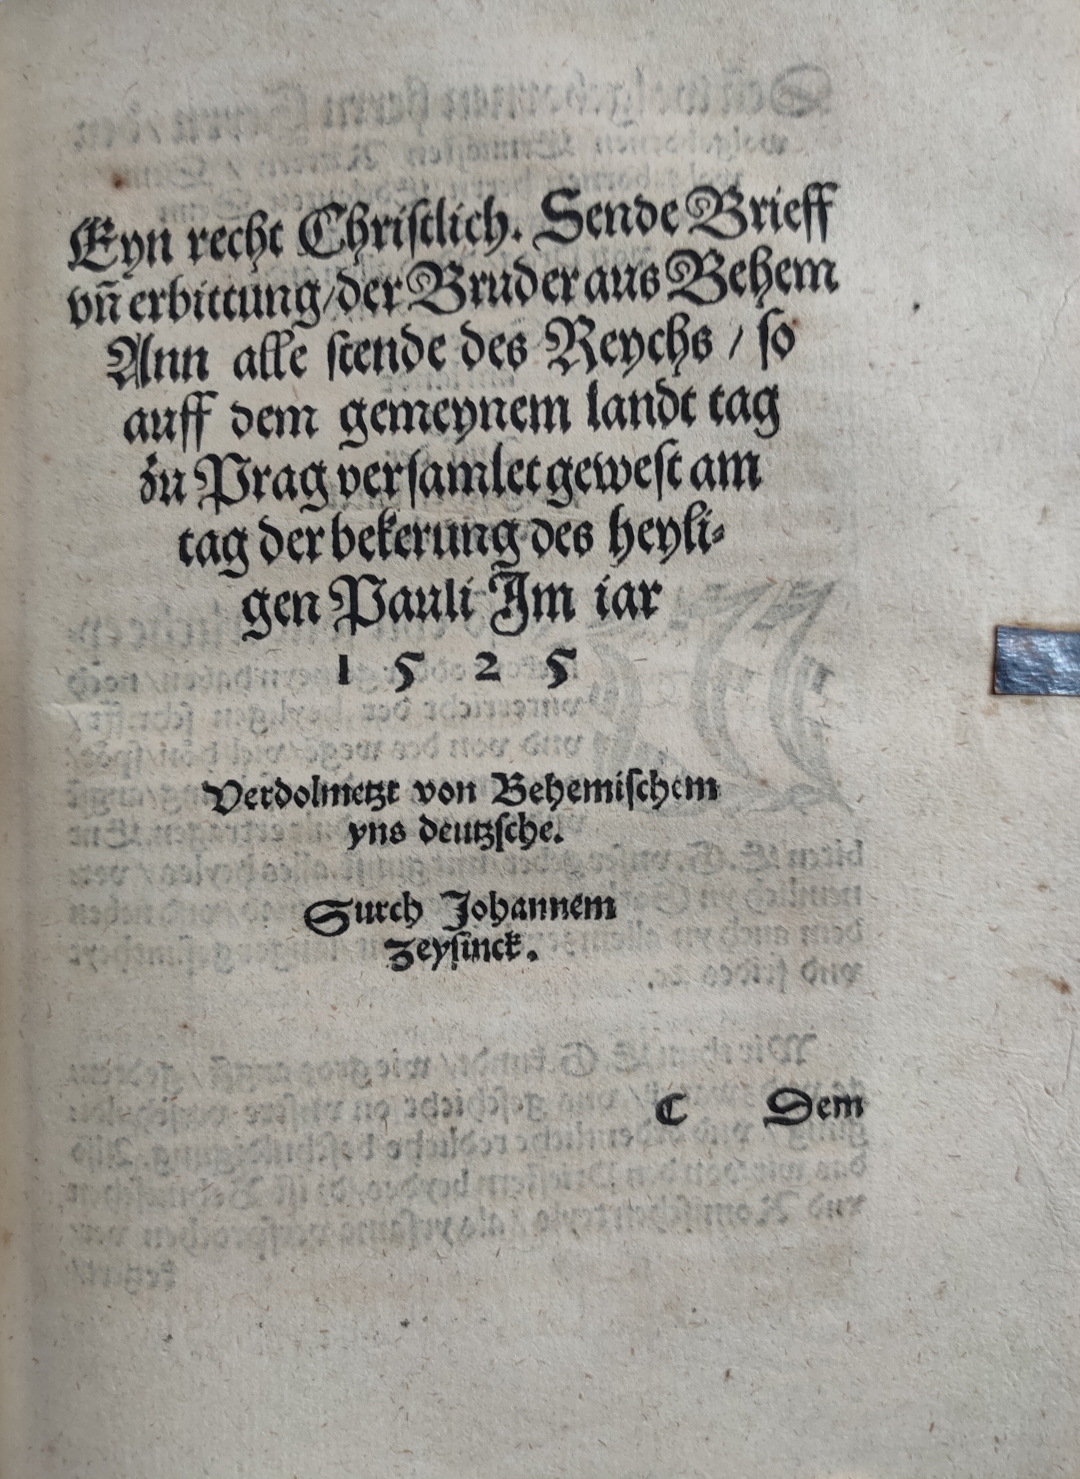 Eyn recht Chriſtlich. Sende Brieff
vn̄ erbittung/der Bruder aus Behem
Ann alle ſtende des Reychs / ſo
auff dem gemeynem landt tag
zu Prag verſamlet geweſt am
tag der bekerung des heyli⸗
gen Pauli Im iar
1 5 2 5
Verdolmetzt von Behemiſchem
yns deutzſche.
Durch Johannem
Zeyſinck.
C Dem